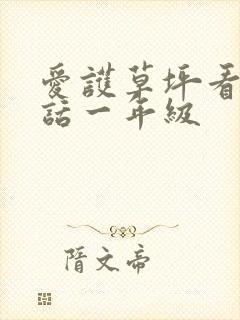 愛護草坪看
話一年級
隋文帝